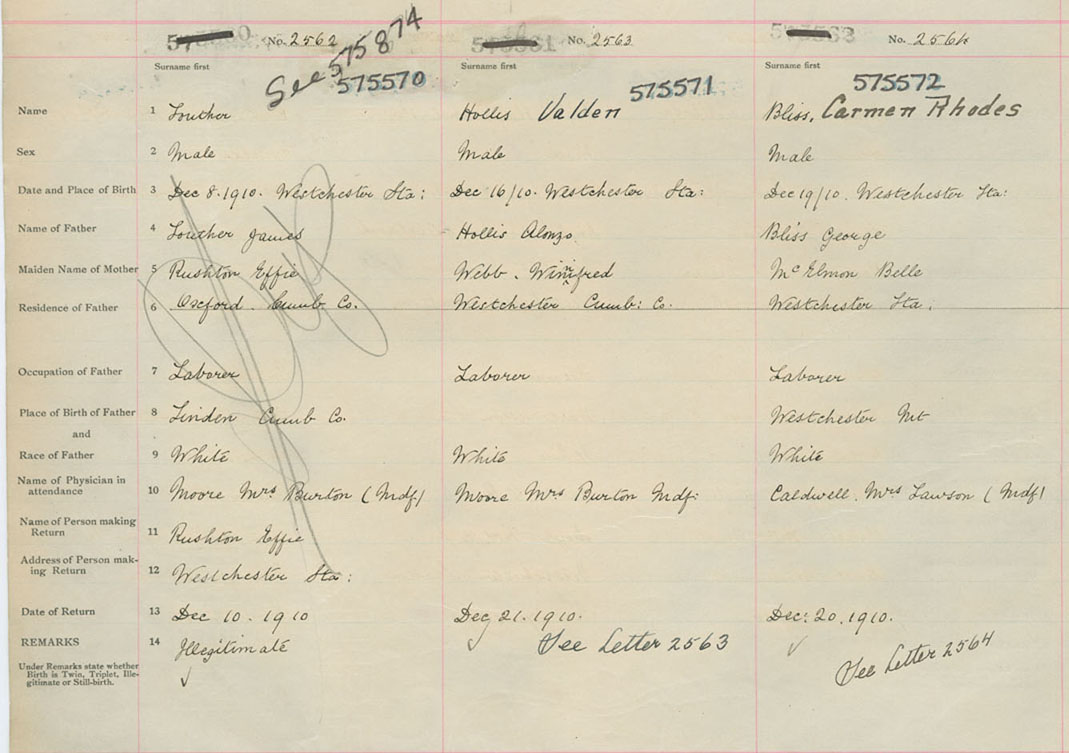 No. 2562 No. 2563 No. 2564
See 575874
Surname first Surname first Surname first
575570 575571 575572
Name 1 Souther Hollis Valden Bliss, Carmen Rhodes
Sex 2 Male Male Male
Date and Place of Birth 3 Dec 8. 1910. Westchester Sta: Dec 16/10. Westchester Sta: Dec 19/10. Westchester Sta:
Name of Father 4 Souther James Hollis Alonzo. Bliss George
Maiden Name of Mother 5 Rushton Effie Webb. Winifred McElmon Belle
Residence of Father 6 Oxford. Cumb: Co. Westchester Cumb: Co. Westchester Sta.
Occupation of Father 7 Laborer Laborer Laborer
Place of Birth of Father 8 Linden Cumb Co. Westchester Mt
and
Race of Father 9 White White White
Name of Physician in
attendance 10 Moore Mrs Burton (Mdf) Moore Mrs Burton Mdf: Caldwell. Mrs Lawson (Mdf)
Name of Person making
Return 11 Rushton Effie
Address of Person mak-
ing Return 12 Westchester Sta:
Date of Return 13 Dec 10. 1910 Dec 21. 1910. Dec: 20. 1910.
REMARKS 14 Illegitimate See Letter 2563 See Letter 2564
Under Remarks state whether
Birth is Twin, Triplet, Ille-
gitimate or Still-birth.